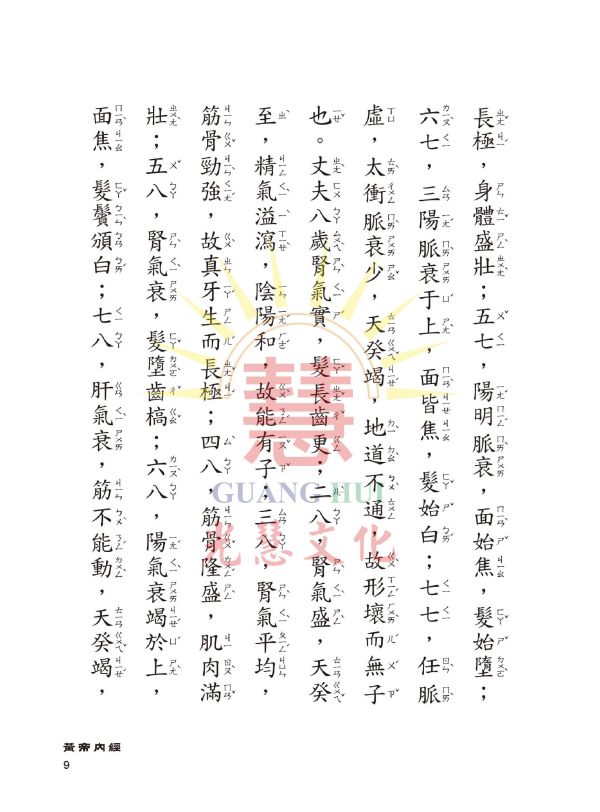 長極，身體盛壯；五七，陽明脈衰，面始焦，髮始墮；
六七，三陽脈衰于上，面皆焦，髮始白；七七，任脈
虛，太衝脈衰少，天癸竭，地道不通，故形壞而無子
也。丈夫八歲腎氣實，髮長齒更；二八，腎氣盛，天癸
至，精氣溢瀉，陰陽和，故能有子；三八，腎氣平均，
筋骨勁強，故真牙生而長極；四八，筋骨隆盛，肌肉滿
壯；五八，腎氣衰，髮墮齒槁；六八，陽氣衰竭於上，
面焦，髮鬢頒白；七八，肝氣衰，筋不能動，天癸竭，
慧
GUANG HUI
光慧文化
黃帝內經
9